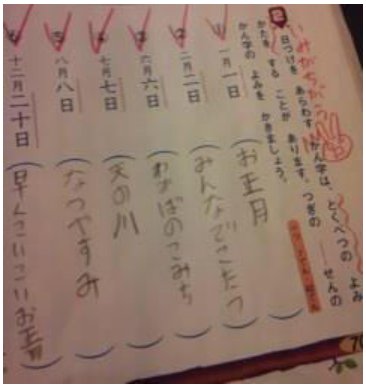 いみがちがう
2 日づけを あらわす かん字は、とくべつの よみ
かたを する ことが あります。つぎの ――せんの
かん字の よみを かきましょう。
① 一月一日 (お正月)
② 二月二日 (みんなでこたつ)
③ 六月六日 (わかばのこみち)
④ 七月七日 (天の川)
⑤ 八月八日 (なつやすみ)
⑥ 十二月二十日 (早くこいこいお正月)